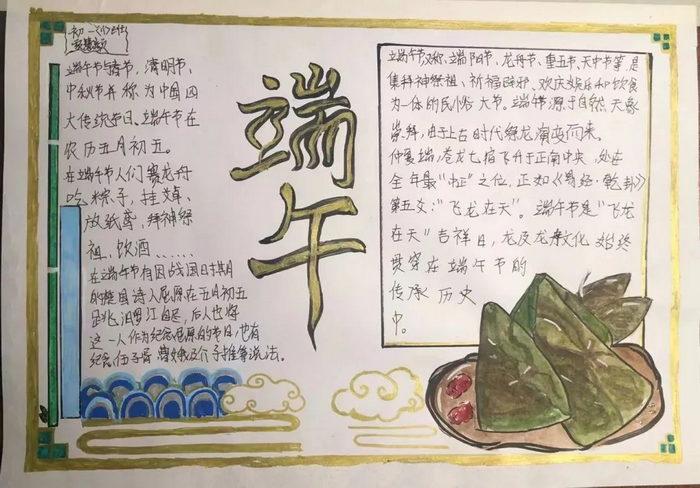 初一(1)班
端午节与春节、清明节、
中秋节并称为中国四
大传统节日。端午节在
农历五月初五。
在端午节人们赛龙舟
吃粽子,挂艾草、
放纸鸢,拜神祭
祖、饮酒……
在端午节有因战国时期
的楚国诗人屈原在五月初五
跳汨罗江自尽,后人也将
这一人作为纪念屈原的节日,也有
纪念伍子胥 曹娥及介子推等说法。
端午
端午节又称端阳节、龙舟节、重五节、天中节等是
集拜神祭祖、祈福辟邪、欢庆娱乐和饮食
为一体的民俗大节。端午源于自然天象
崇拜,由上古时代祭龙演变而来。
仲夏端,苍龙七宿飞升于正南中央,处在
全年最“中正”之位,正如《易经·乾卦》
第五爻:“飞龙在天”。端午节是“飞龙
在天”吉祥日,龙及龙舟文化始终
贯穿在端午节的
传承历史
中。